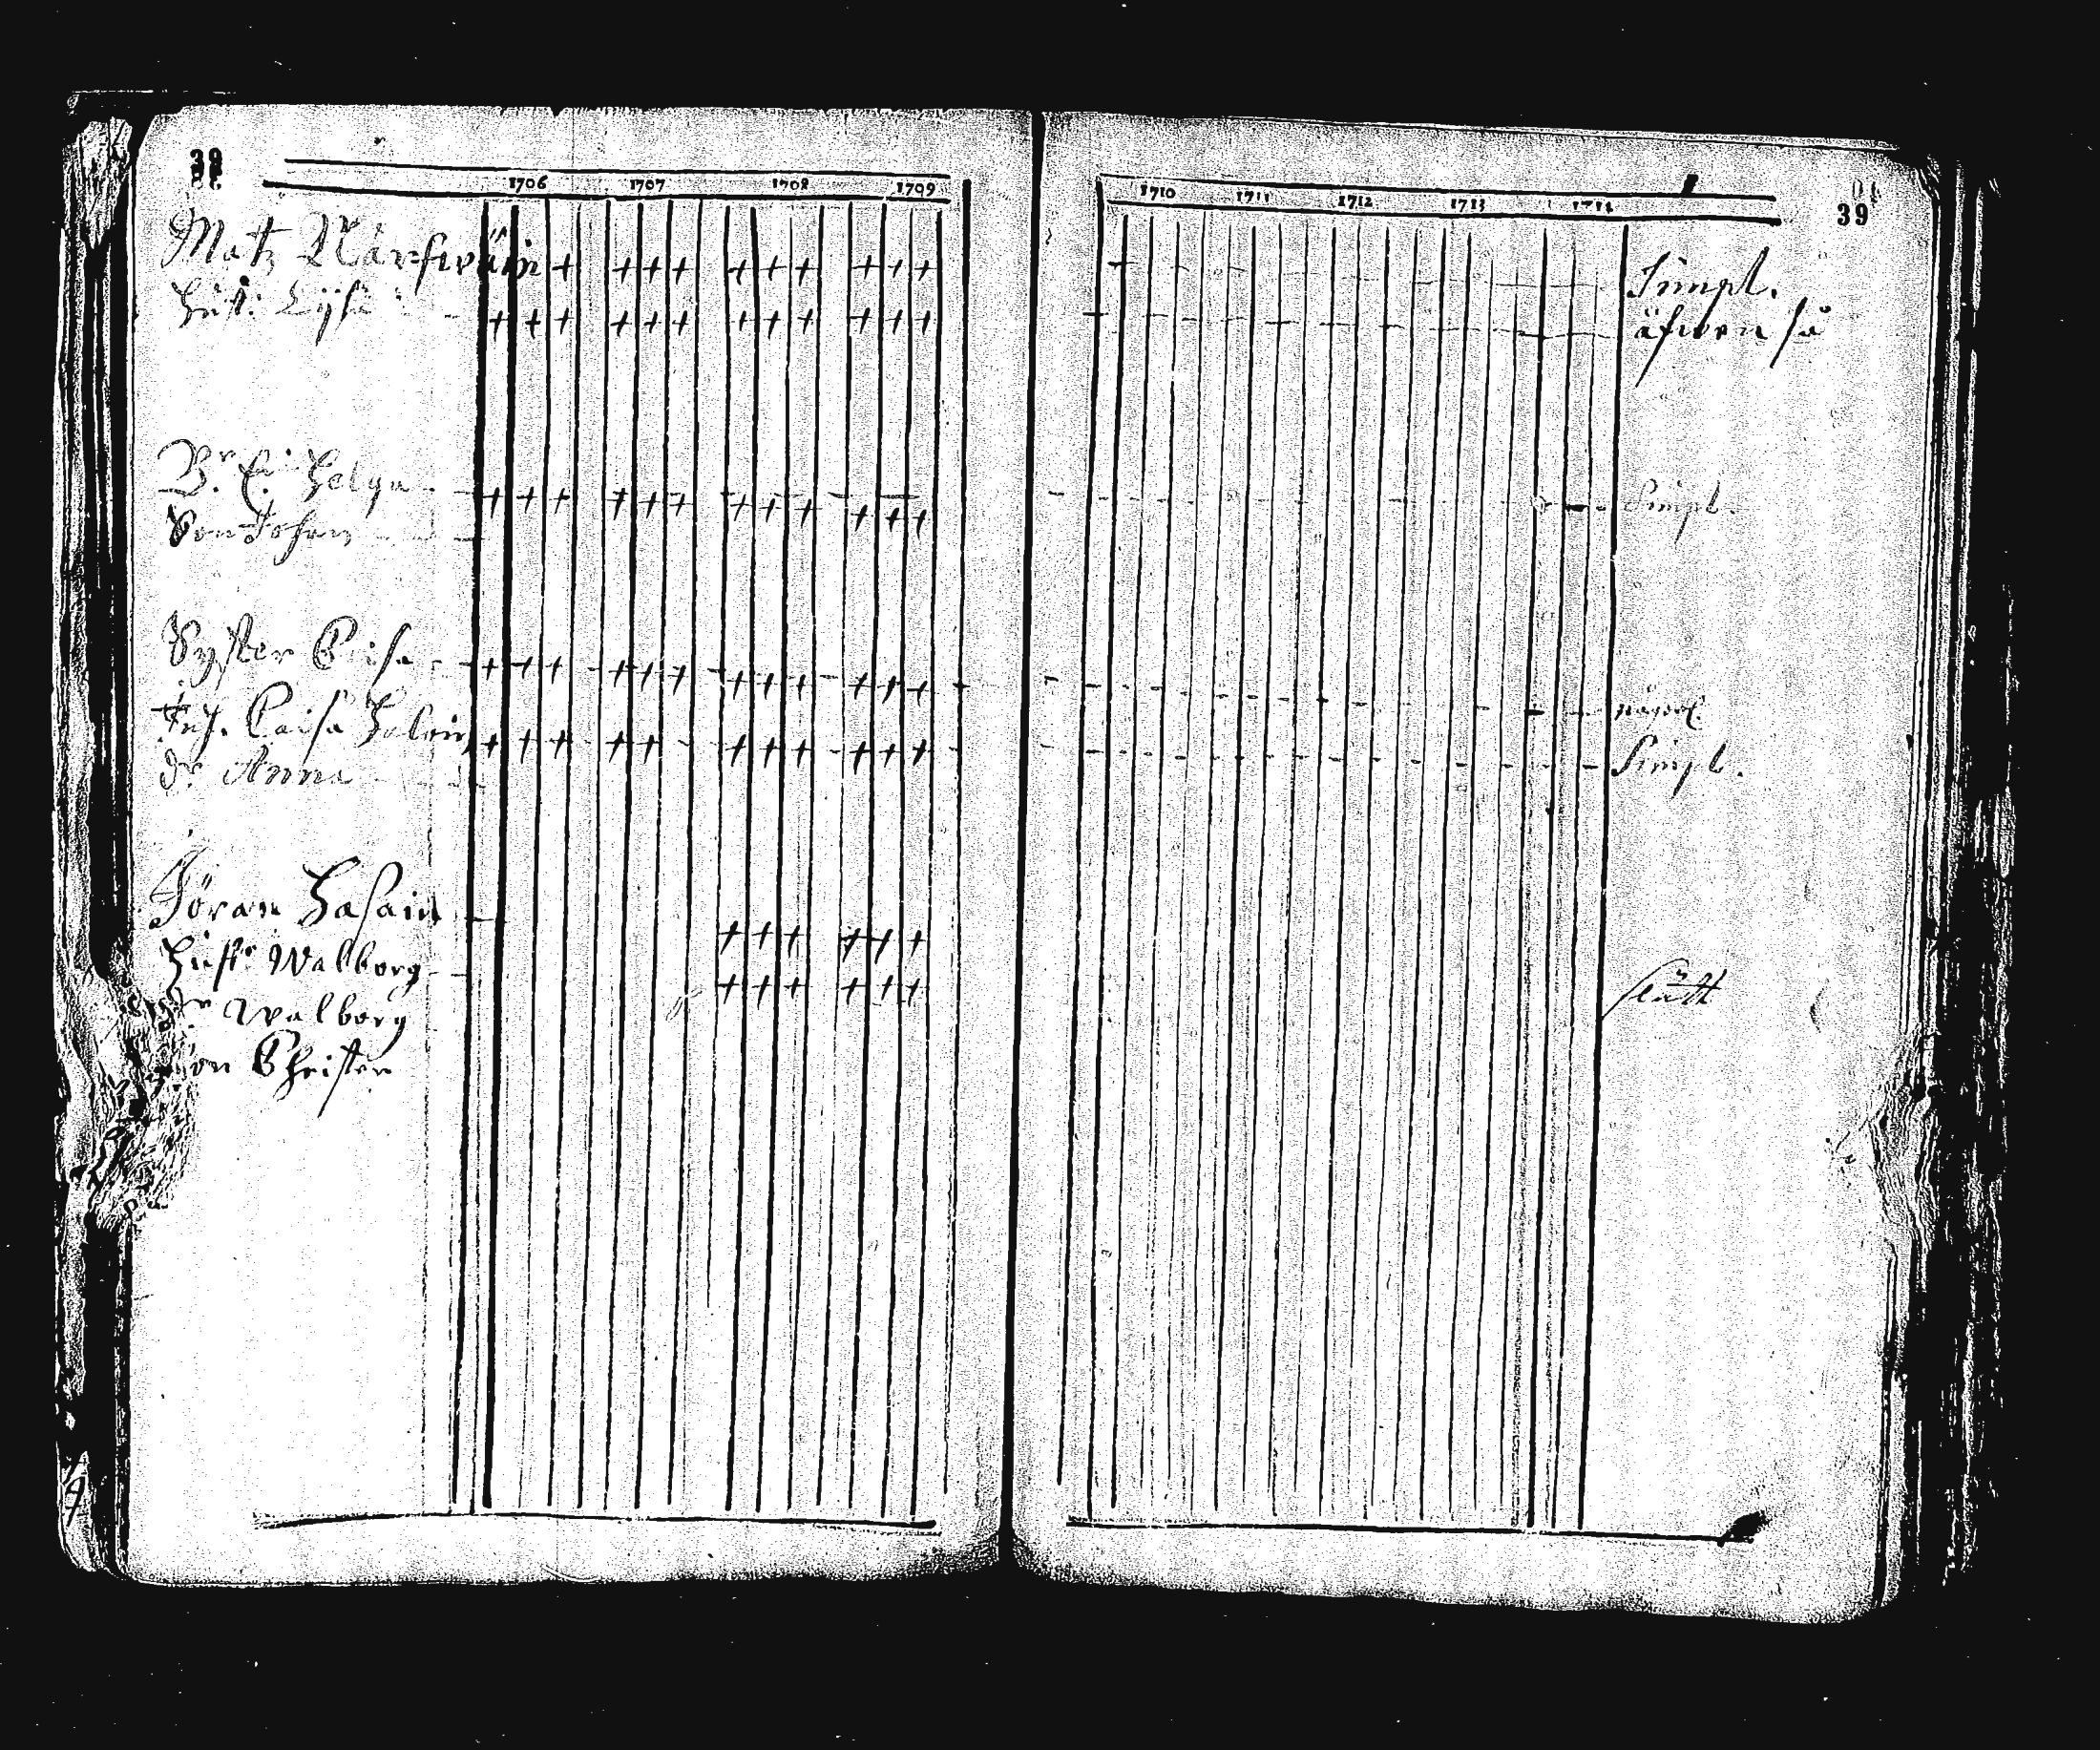 39
1706 1707 1708 1709
Matz Närfwäin
Hust: Lijsa
Br. E. Helga
Son Johan
Syster Caisa
Inh. Caisa
dr Anna
Jöran Hasain
Hust: Walborg
dr Walborg
Son Christer
39
1710 1711 1712 1713 1714
Simpl.
äfwen så
Simpl.
någorl.
Simpl.
slätt